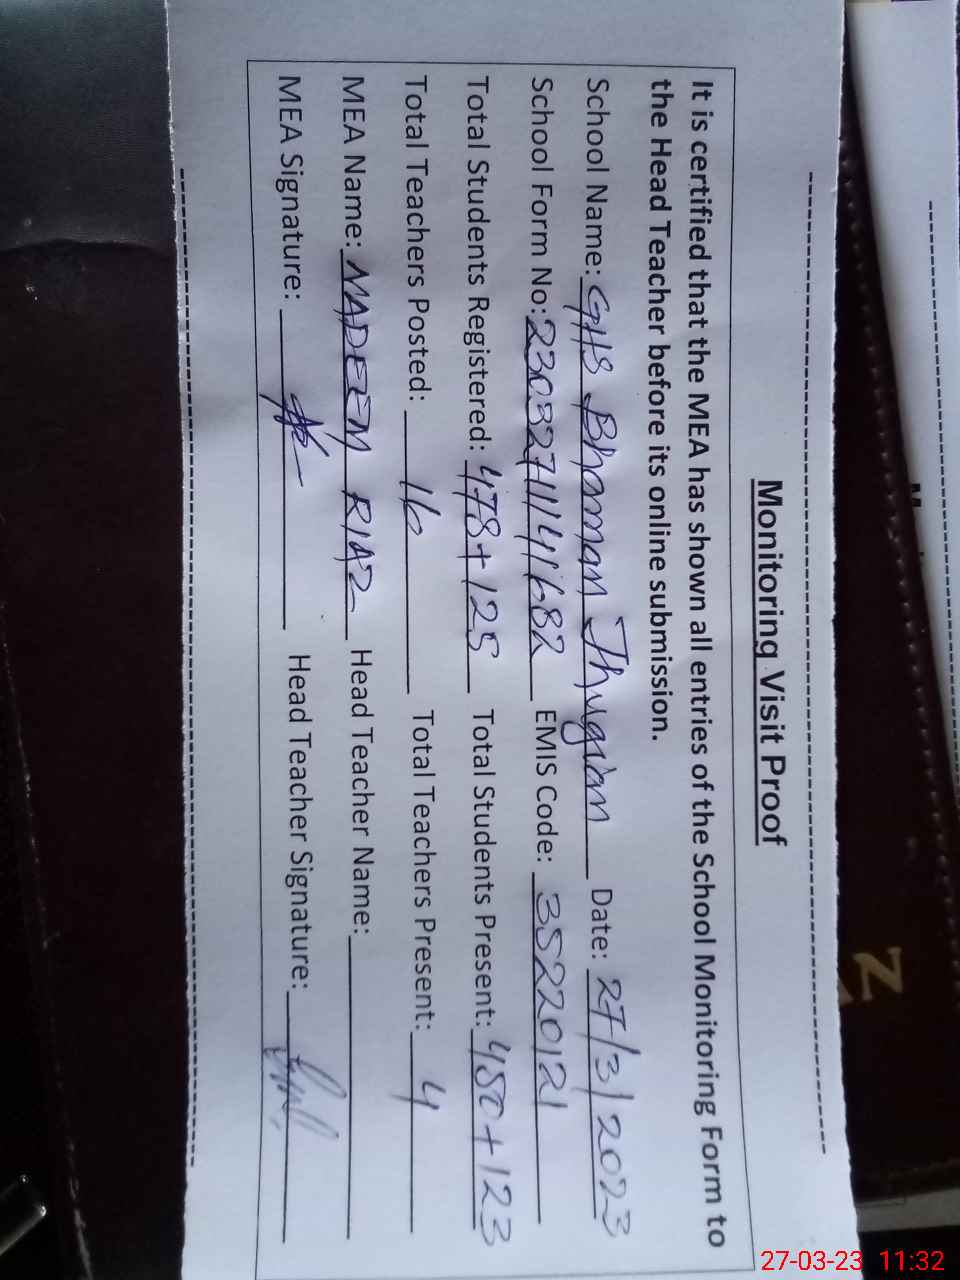 Monitoring Visit Proof
It is certified that the MEA has shown all entries of the School Monitoring Form to
the Head Teacher before its online submission.
School Name: GHS Bhaman Jhugian Date: 27/3/2023
School Form No: 23032711141682 EMIS Code: 35220121
Total Students Registered: 478+125 Total Students Present: 450+123
Total Teachers Posted: 16 Total Teachers Present: 4
MEA Name: NADEEM RIAZ Head Teacher Name:
MEA Signature: Head Teacher Signature:
27-03-23 11:32